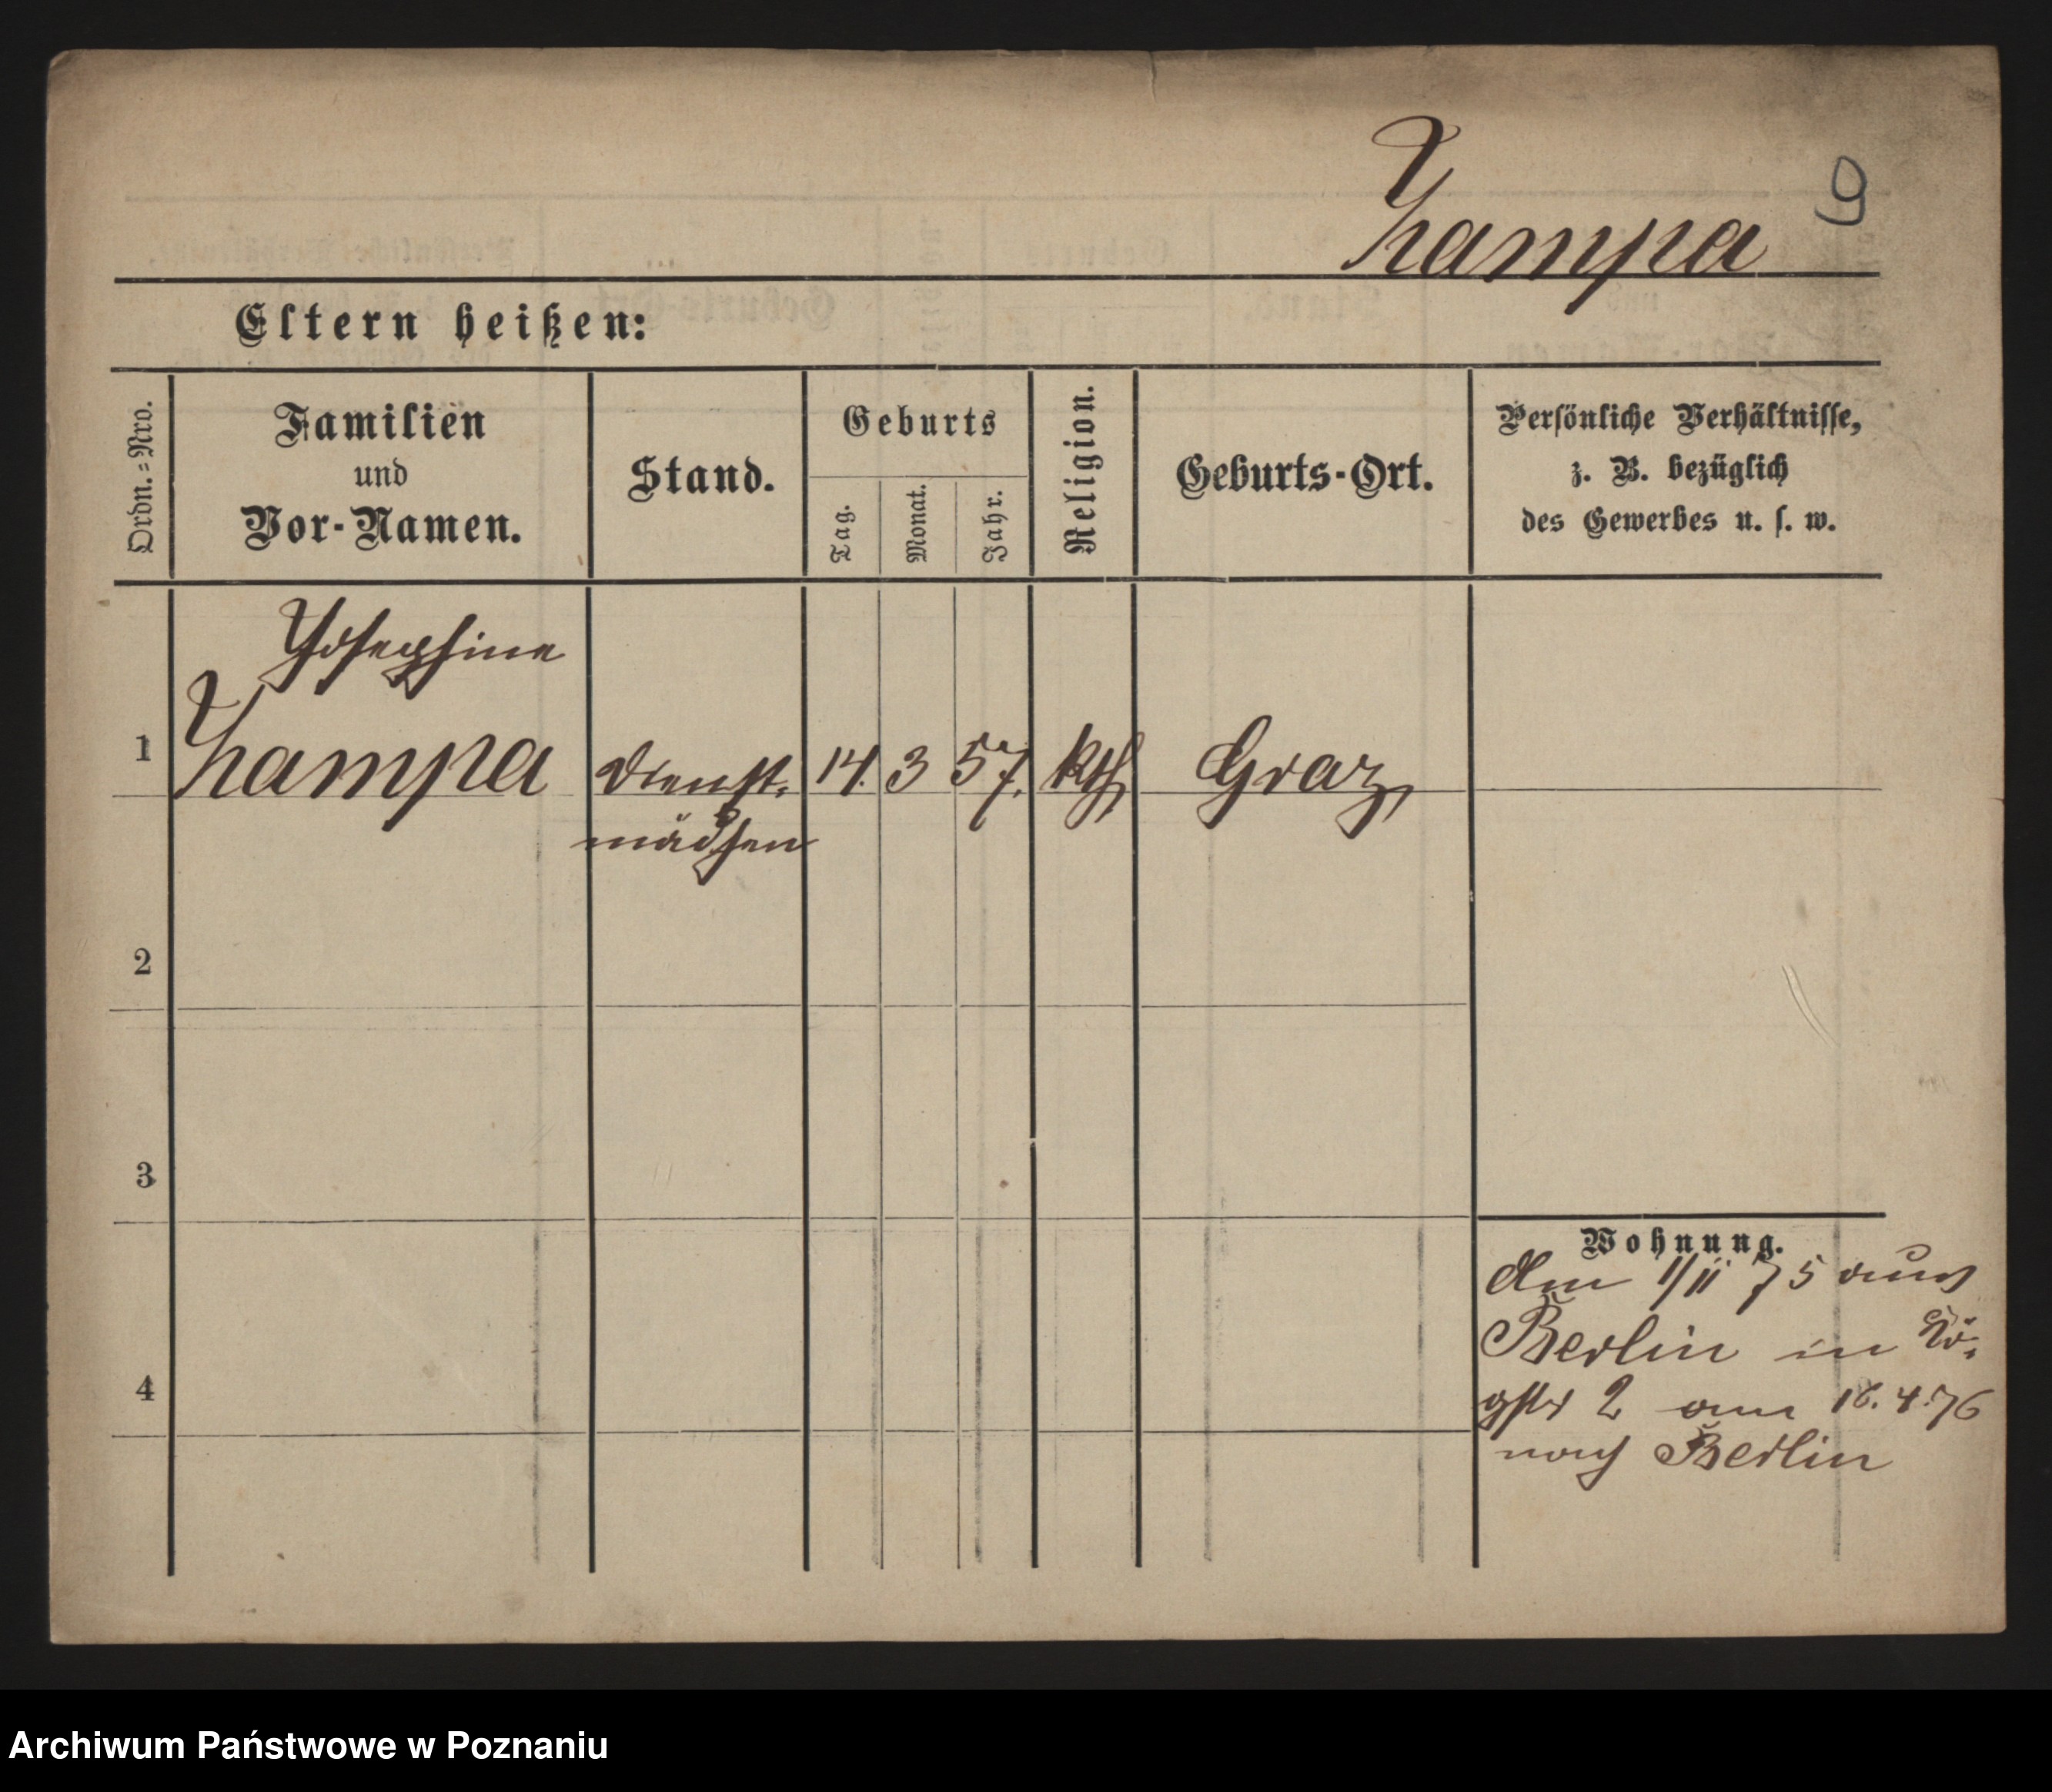 Zampa
9
Eltern heißen:
Ordn.=Nro.
Familien
und
Vor-Namen.
Stand.
Geburts
Tag.
Monat.
Jahr.
Religion.
Geburts-Ort.
Persönliche Verhältnisse,
z. B. bezüglich
des Gewerbes u. s. w.
Josephine
1 Zampa Dienst. 14. 3 57. kth Graz
mädchen
2
3
4
Wohnung.
Am 1/11 75 aus
Berlin in
2 am 18.4.76
nach Berlin
Archiwum Państwowe w Poznaniu